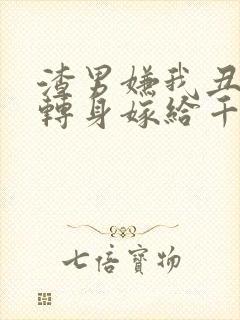 渣男嫌我丑
轉身嫁給千
七倍寶物